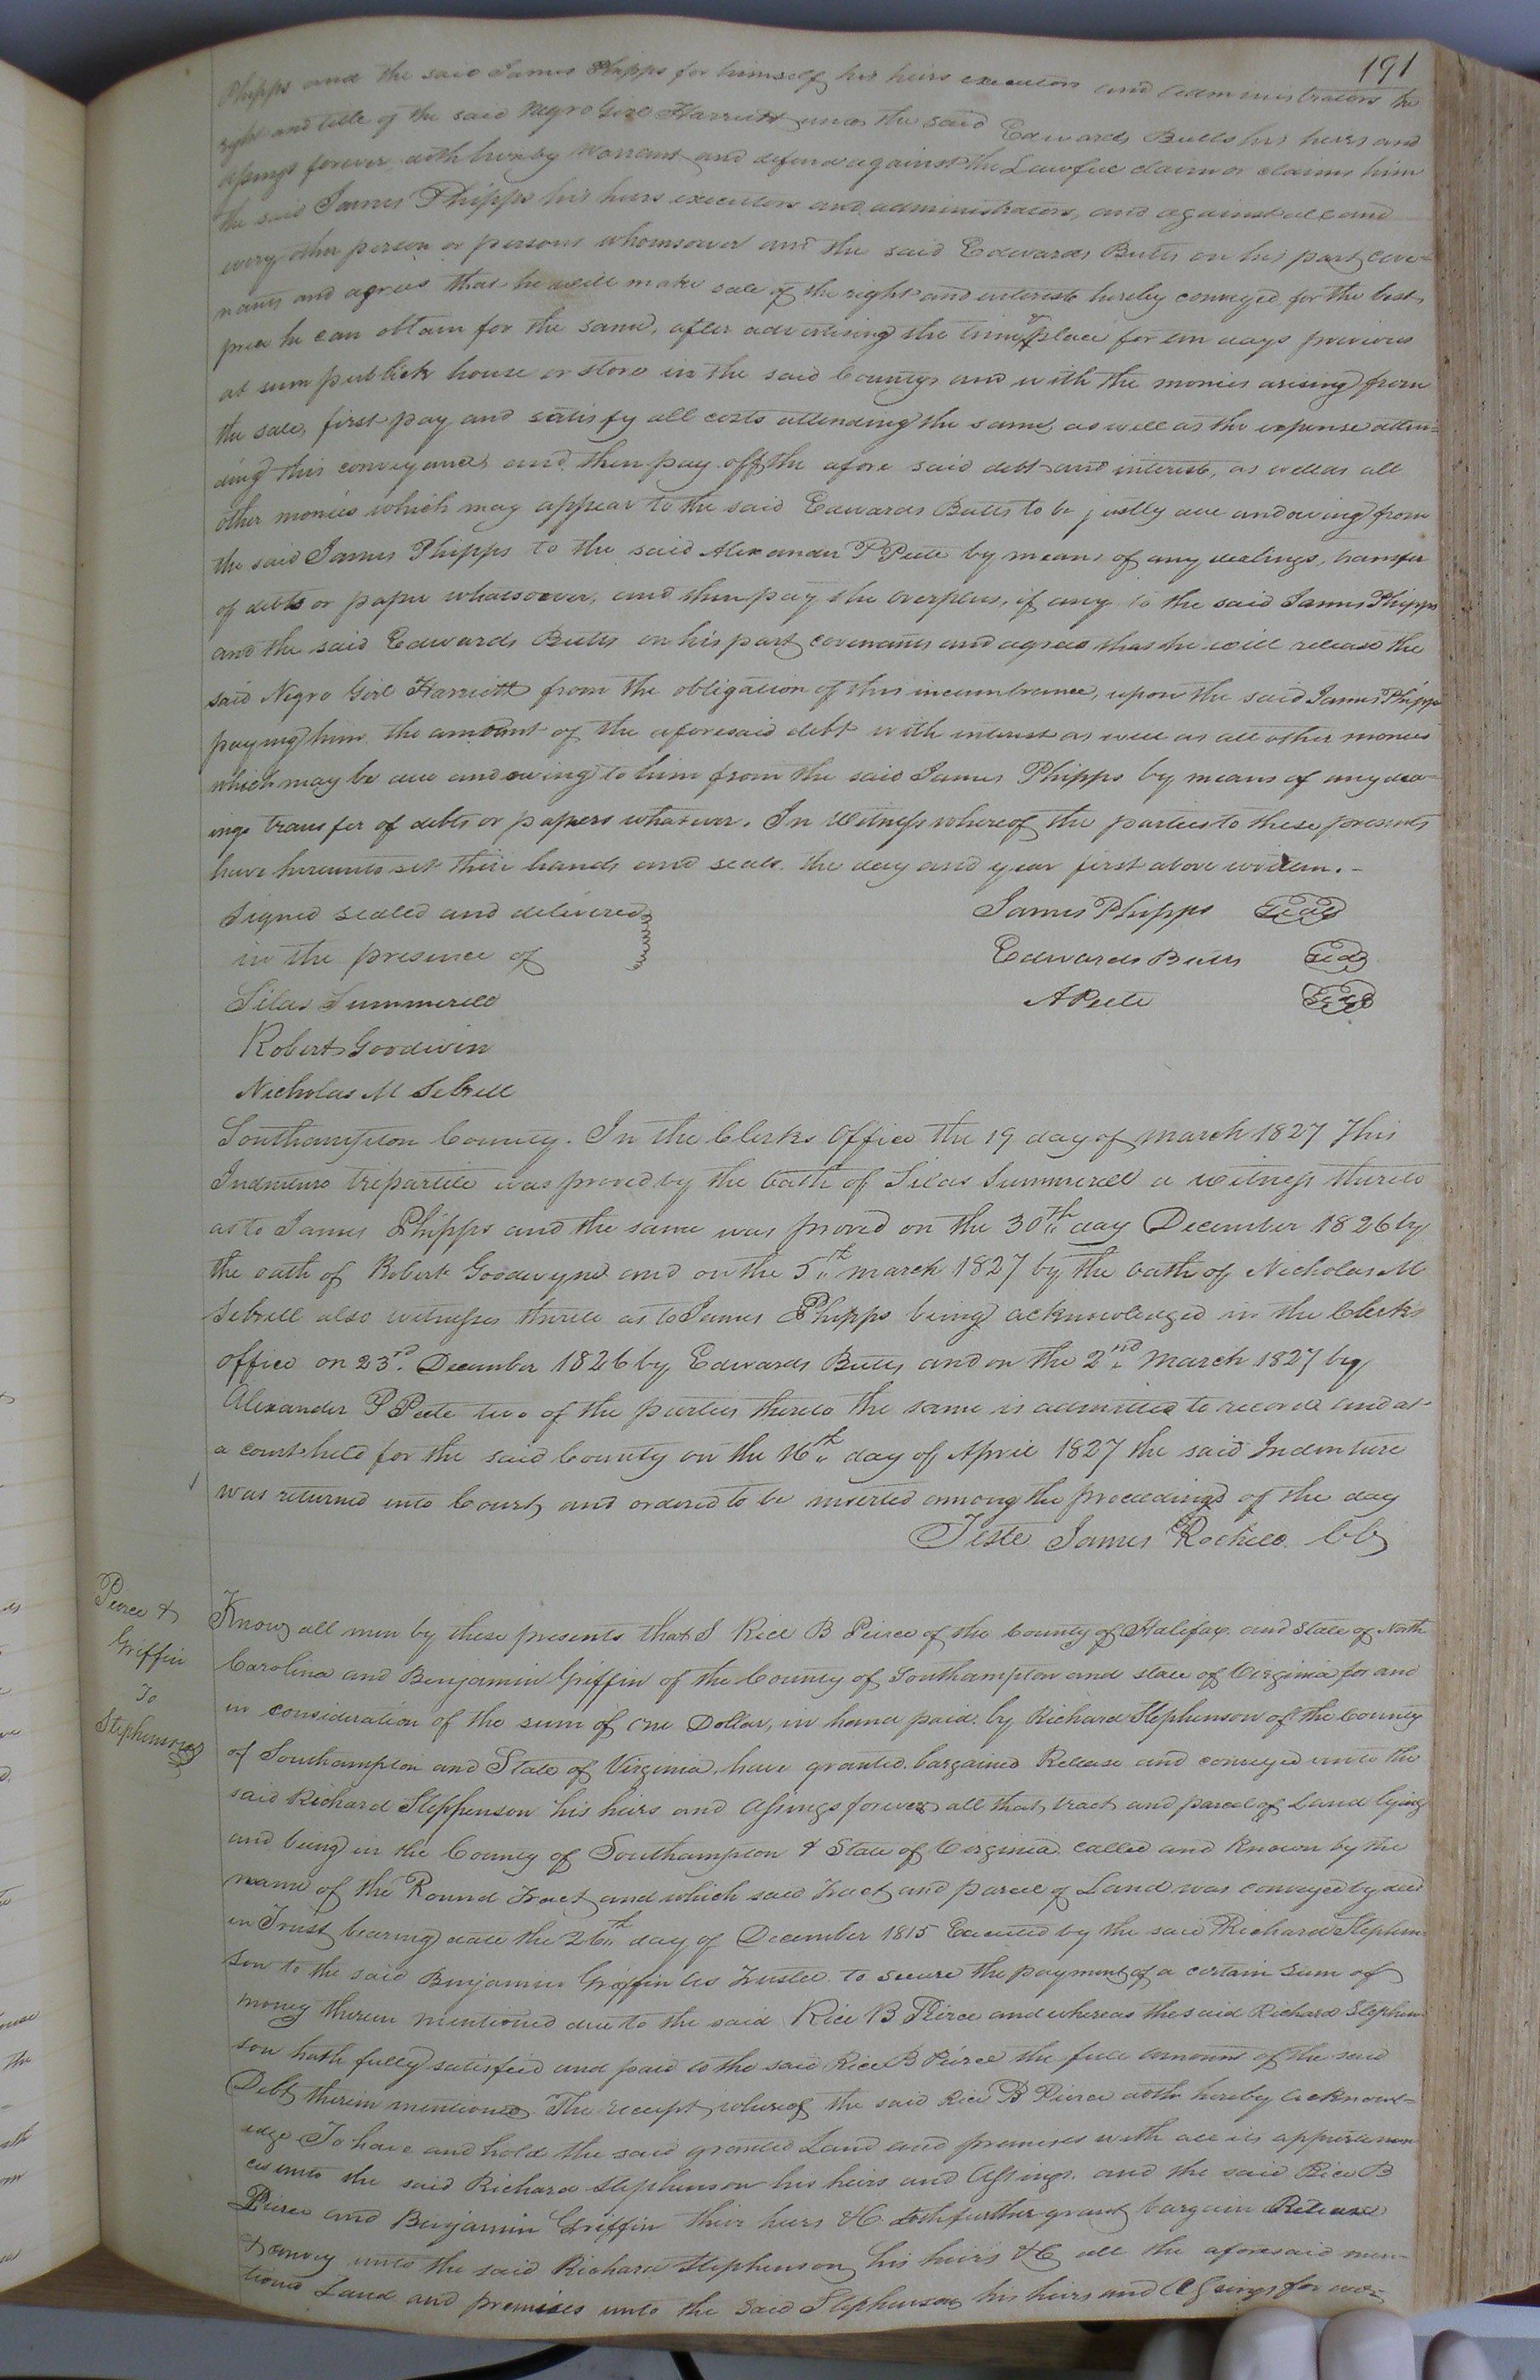 191
Phipps and the said James Phipps for himself his heirs executors and administrators the
right and title of the said Negro Girl Harriett unto the said Edwards Butts his heirs and
assings forever doth hereby Warrant and defend against the Lawful claim or claims him
the said James Phipps his heirs executors and administrators, and against all and
every other person or persons whomsoever and the said Edwards Butts on his part cove=
nants and agrees that he will make sale of the right and interest hereby conveyed for the best
price he can obtain for the same, after advertising the time & place for ten days previous
at sum publick house or store in the said County and with the monies arising from
the sale, first pay and satisfy all costs attending the same, as well as the expense atten=
ding this conveyance, and then pay off the afore said debt and interest, as well as all
other monies which may appear to the said Edwards Butts to be justly due and owing from
the said James Phipps to the said Alexander P Peete by means of any dealings, transfer
of debts or paper whatsoever, and then pay the overplus, if any to the said James Phipps
and the said Edwards Butts on his part covenants and agrees that he will release the
said Negro Girl Harriett from the obligation of this incumbrance, upon the said James Phipps
paying him the amount of the aforesaid debt with interest as well as all other monies
which may be due and owing to him from the said James Phipps by means of any dea=
ings transfer of debts or papers whatever. In Witness whereof the parties to these presents
have hereunto set their hands and seals the day and year first above written. -
Signed sealed and delivered
in the presence of
Silas Summerell
Robert Goodwin
Nicholas M Sebrell
James Phipps Seal
Edwards Butts Seal
A Peete Seal
Southampton County. In the Clerks Office the 19 day of March 1827 This
Indenture tripartite was proved by the Oath of Silas Summerell a witness thereto
as to James Phipps and the same was proved on the 30th day December 1826 by
the oath of Robert Goodwynd and on the 5th March 1827 by the oath of Nicholas M
Sebrell also witnesses thereto as to James Phipps being acknowledged in the Clerks
office on 23rd December 1826 by Edwards Butts, and on the 2nd March 1827 by
Alexander P Peete two of the parties thereto the same is admitted to record and at
a court held for the said County on the 16th day of April 1827 the said Indenture
was returned into Court, and ordered to be inserted among the proceedings of the day
Teste James Rochell CC
Peirce &
Griffin
To
Stephenson
Know all men by these presents that I Rice B Peirce of the County of Halifax and State of North
Carolina and Benjamin Griffin of the County of Southampton and state of Virginia for and
in consideration of the sum of one Dollar, in hand paid by Richard Stephenson of the County
of Southampton and State of Virginia, have granted bargained Release and conveyed unto the
said Richard Stephenson his heirs and Assings forever all that tract and parcel of Land lying
and being in the County of Southampton & State of Virginia called and Known by the
name of the Round Tract, and which said Tract and parcel of Land was conveyed by deed
in Trust, bearing date the 26th day of December 1815 Executed by the said Richard Stephen
son to the said Benjamin Griffin as Trustee to secure the payment of a certain sum of
money therein mentioned due to the said Rice B Peirce and whereas the said Richard Stephen
son hath fully satisfied and paid to the said Rice B Peirce the full amount of the said
Debt therein mentioned The receipt whereof the said Rice B Peirce doth hereby acknowl=
edge To have and hold the said granted Land and premises with all its appurtenan
ces unto the said Richard Stephenson his heirs and Assings. and the said Rice B
Peirce and Benjamin Griffin their heirs &C doth further grant, bargain Release
& convey unto the said Richard Stephenson his heirs &C all the aforesaid men=
tioned Land and premises unto the said Stephenson his heirs and Assings for ever=